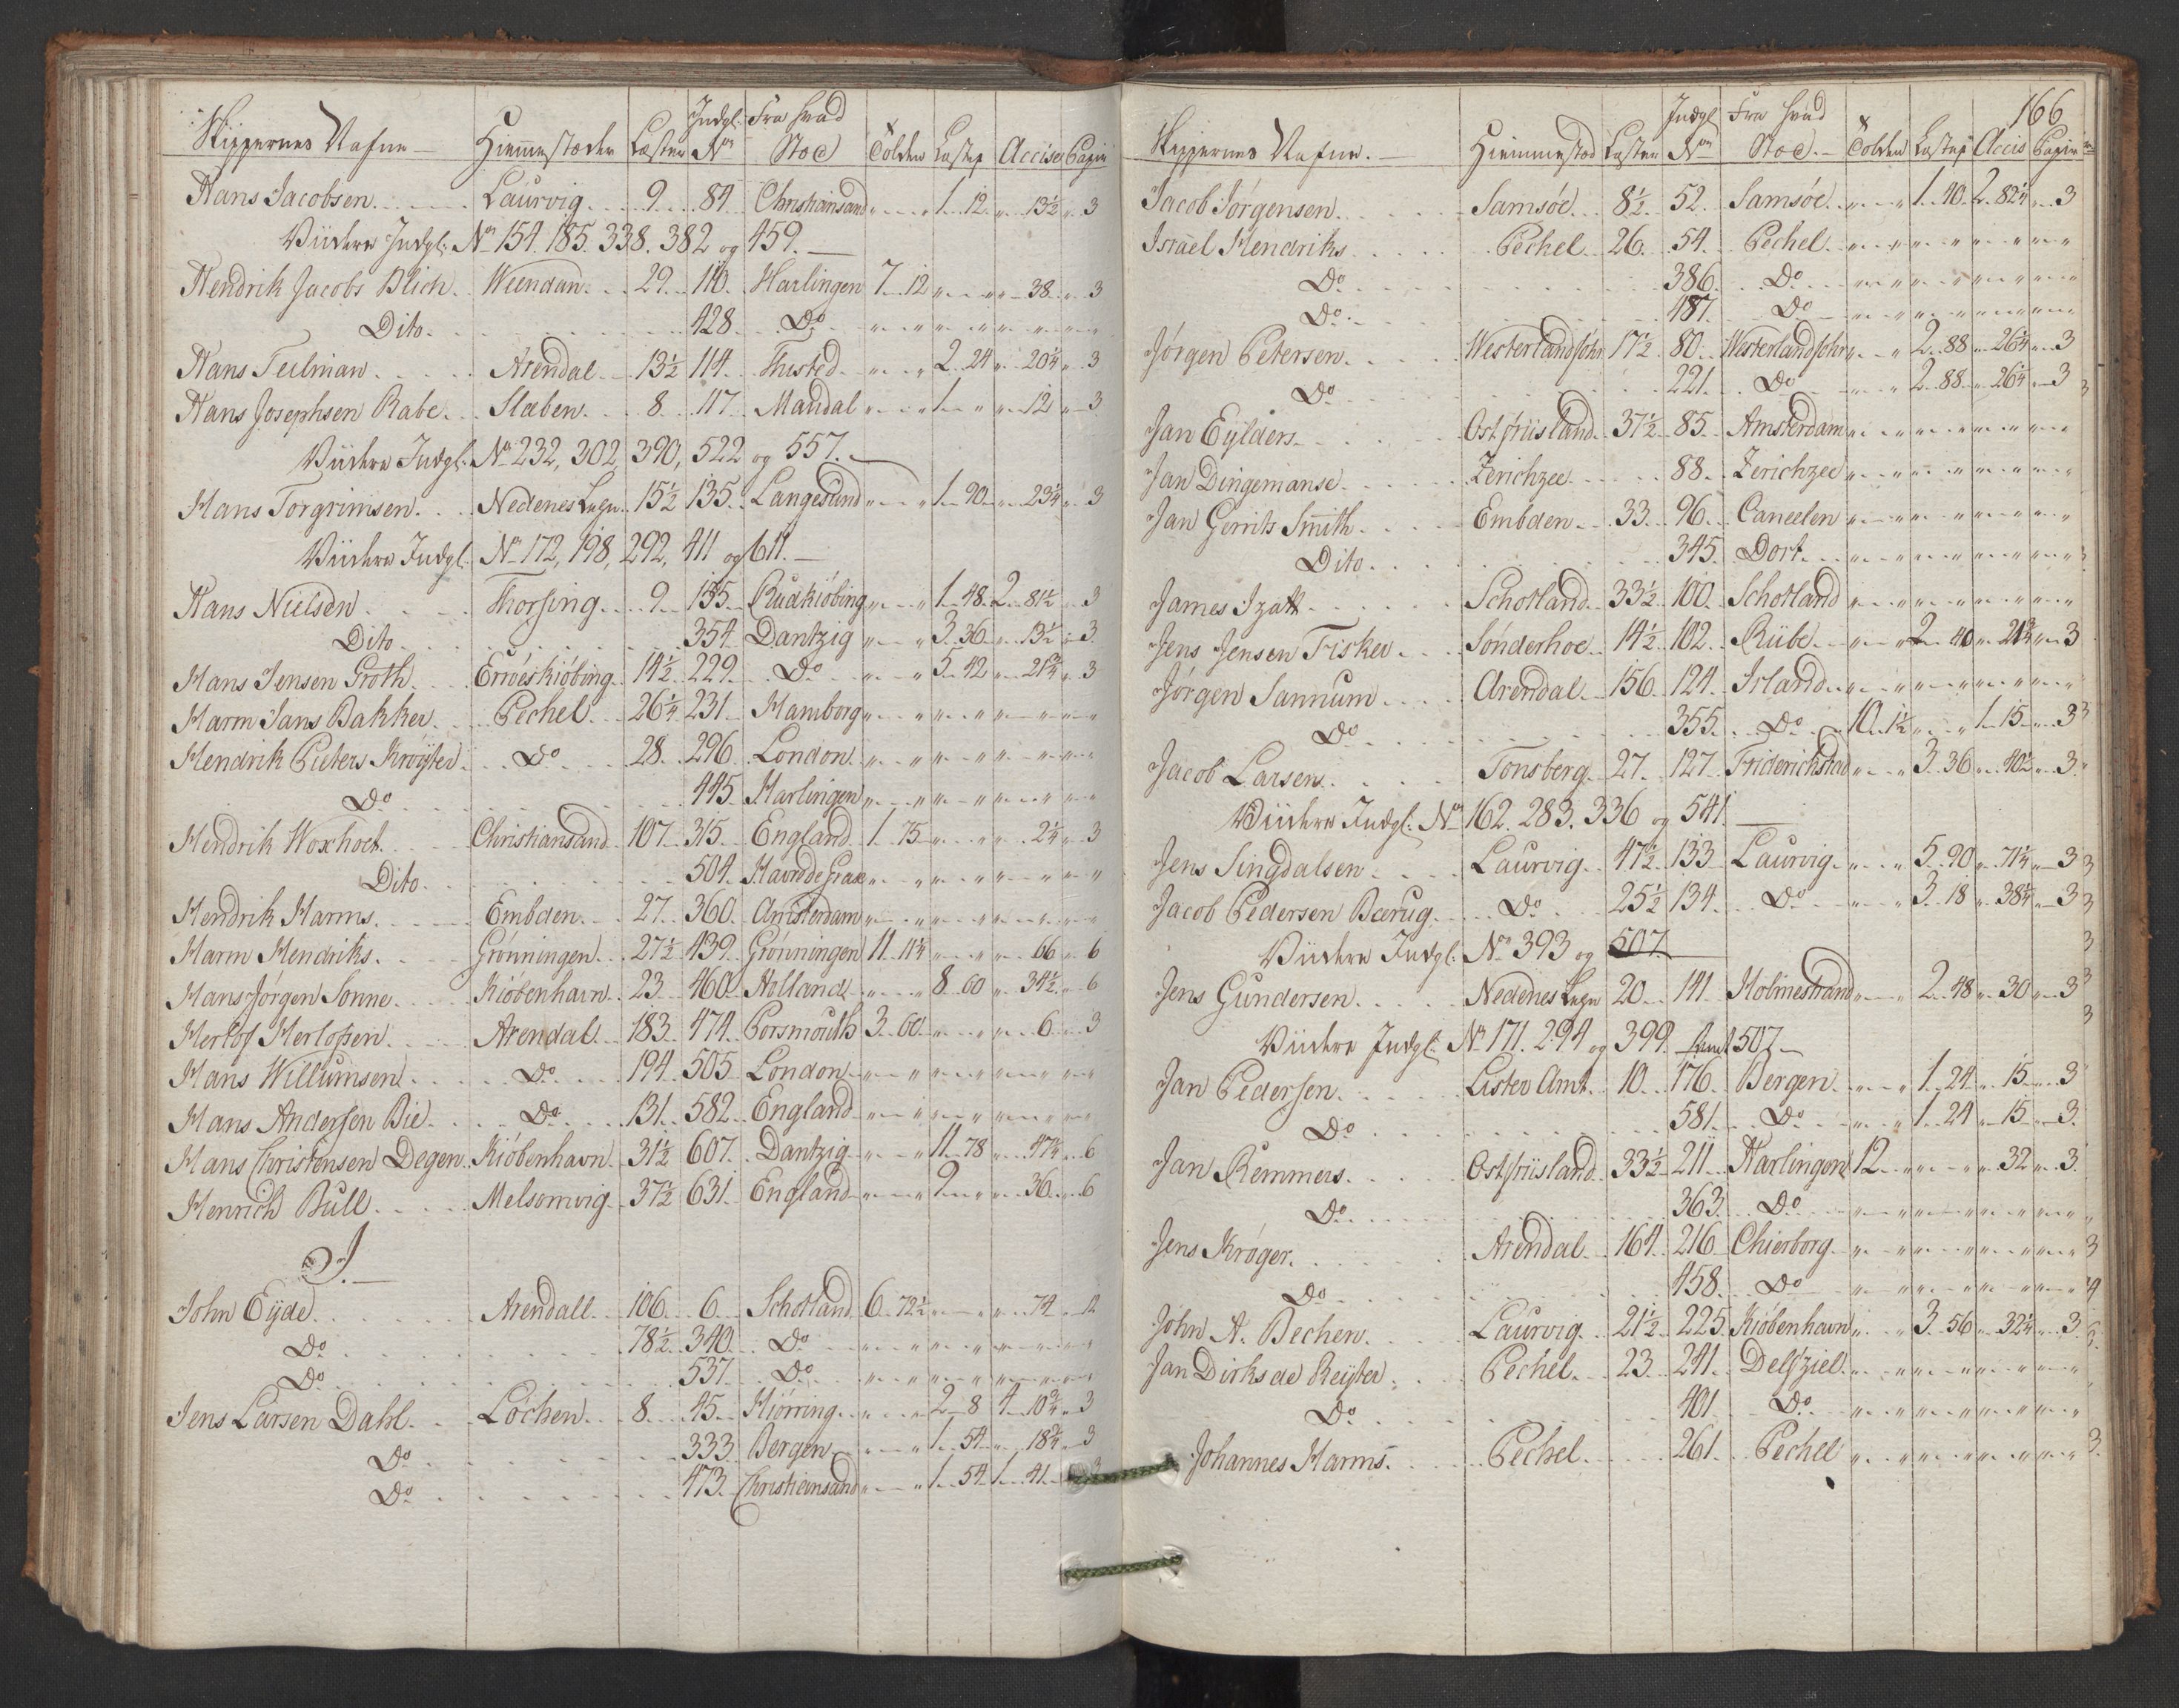 Skippernes Nafne Hiemmestæder Læster Indgl. No Fra hvad Stæd Tolden Lastep Accise Papir
Hans Jacobsen Laurvig 9 84 Christiansand " " 1 12 " 13½ " 3
Viidere Indgl. No 154. 185. 338. 382 og 459.
Hendrik Jacobs Blich Weendam 29 110 Harlingen 7 12 " " " 38 " 3
Dito 428 Do " " " " " " " "
Hans Teilman Arendal 13½ 114 Thisted " " 2 24 " 20¼ " 3
Hans Josephsen Rabe Slæben 8 117 Mandal " " 1 " " 12 " 3
Viidere Indgl. No 232, 302, 390, 522 og 557.
Hans Torgrimsen Nedenes Lehn 15½ 135 Langesund " " 1 90 " 23¼ " 3
Viidere Indgl. No 172, 198, 292, 411 og 611.
Hans Nielsen Thorsing 9 155 Rudkiöbing " " 1 48 2 81½ " 3
Dito 354 Dantzig " " 3 36 " 13½ " 3
Hans Jensen Groth Eröeskiöbing 14½ 229 Do " " 5 42 " 21¾ " 3
Harm Jans Bakker Pechel 26¼ 231 Hamborg " " " " " " " "
Hendrik Pieters Kröyter Do 28 296 London " " " " " " " "
Do 445 Harlingen " " " " " " " "
Hendrik Woxholt Christiansand 107 315 England 1 75 " " " 2¼ " 3
Dito 504 Havre de Grace " " " " " " " "
Hendrik Harms Embden 27 360 Amsterdam " " " " " " " "
Harm Hendriks Grönningen 27½ 439 Grönningen 11 11¼ " " " 66 " 6
Hans Jörgen Sonne Kiöbenhavn 23 460 Holland " " 8 60 " 34½ " 6
Herlof Herlofsen Arendal 183 474 Porsmouth 3 60 " " " 6 " 3
Hans Willumsen Do 194 505 London " " " " " " " "
Hans Andersen Bie Do 131 582 England " " " " " " " "
Hans Christensen Degen Kiöbenhavn 31½ 607 Dantzig " " 11 78 " 47¼ " 6
Henrich Bull Melsomvig 37½ 631 England " " 9 " " 36 " 6
J.
John Eyde Arendall 106 6 Schotland 6 72½ " " " 74 " 12
Do 78½ 340 Do " " " " " " " "
Do 537 Do " " " " " " " "
Jens Larsen Dahl Löchen 8 45 Hiörring " " 2 8 4 10¾ " 3
Do 333 Bergen " " 1 54 " 18¾ " 3
Do 473 Christiansand " " 1 54 1 41 " 3
166
Skippernes Nafne Hiemmestæd Læster Indgl No Fra hvad Stæd Tolden Lastep Accis Papir
Jacob Jörgensen Samsöe 8½ 52 Samsöe " " 1 40 2 82¼ " 3
Israel Hendriks Pechel 26 54 Pechel " " " " " " " "
Do 386 Do " " " " " " " "
Do 487 Do " " " " " " " "
Jörgen Petersen Westerlandföhr 17½ 80 Westerlandföhr " " 2 88 " 26¼ " 3
Do 221 Do " " 2 88 " 26¼ " 3
Jan Eylders Ostfriisland 37½ 85 Amsterdam " " " " " " " "
Jan Dingemanse Zerichzee 88 Zerichzee " " " " " " " "
Jan Gerrits Smith Embden 33 96 Caneelen " " " " " " " "
Dito 345 Dort " " " " " " " "
James Izatt Schotland 33½ 100 Schotland " " " " " " " "
Jens Jensen Fisker Sönderhoe 14½ 102 Riibe " " 2 40 " 21¾ " 3
Jörgen Sannum Arendal 156 124 Irland " " " " " " " "
Do 355 Do 10 1½ " " 1 15 " 3
Jacob Larsen Tonsberg 27 127 Friderichstad " " 3 36 " 40½ " 3
Viidere Indgl. No 162. 283. 336 og 541.
Jens Singdalsen Laurvig 47½ 133 Laurvig " " 5 90 " 71¼ " 3
Jacob Pedersen Bærug Do 25½ 134 Do " " 3 18 " 38¼ " 3
Viidere Indgl. No 393 og 507
Jens Gundersen Nedenes Lehn 20 141 Holmestrand " " 2 48 " 30 " 3
Viidere Indgl. No 171. 294 og 399. samt 507
Jan Pedersen Lister Amt 10 176 Bergen " " 1 24 " 15 " 3
Do 581 Do " " 1 24 " 15 " 3
Jan Remmers Ostfriisland 33½ 211 Harlingen 12 " " " " 32 " 3
Do 363 Do " " " " " " " "
Jens Kröger Arendal 164 216 Chierborg " " " " " " " "
Do 458 Do " " " " " " " "
John A. Becher Laurvig 21½ 225 Kiöbenhavn " " 3 56 " 32¼ " 3
Jan Dirks de Reyter Pechel 23 241 Delfziel " " " " " " " "
Do 401 Do " " " " " " " "
Johannes Harms Pechel 261 Pechel " " " " " " " "